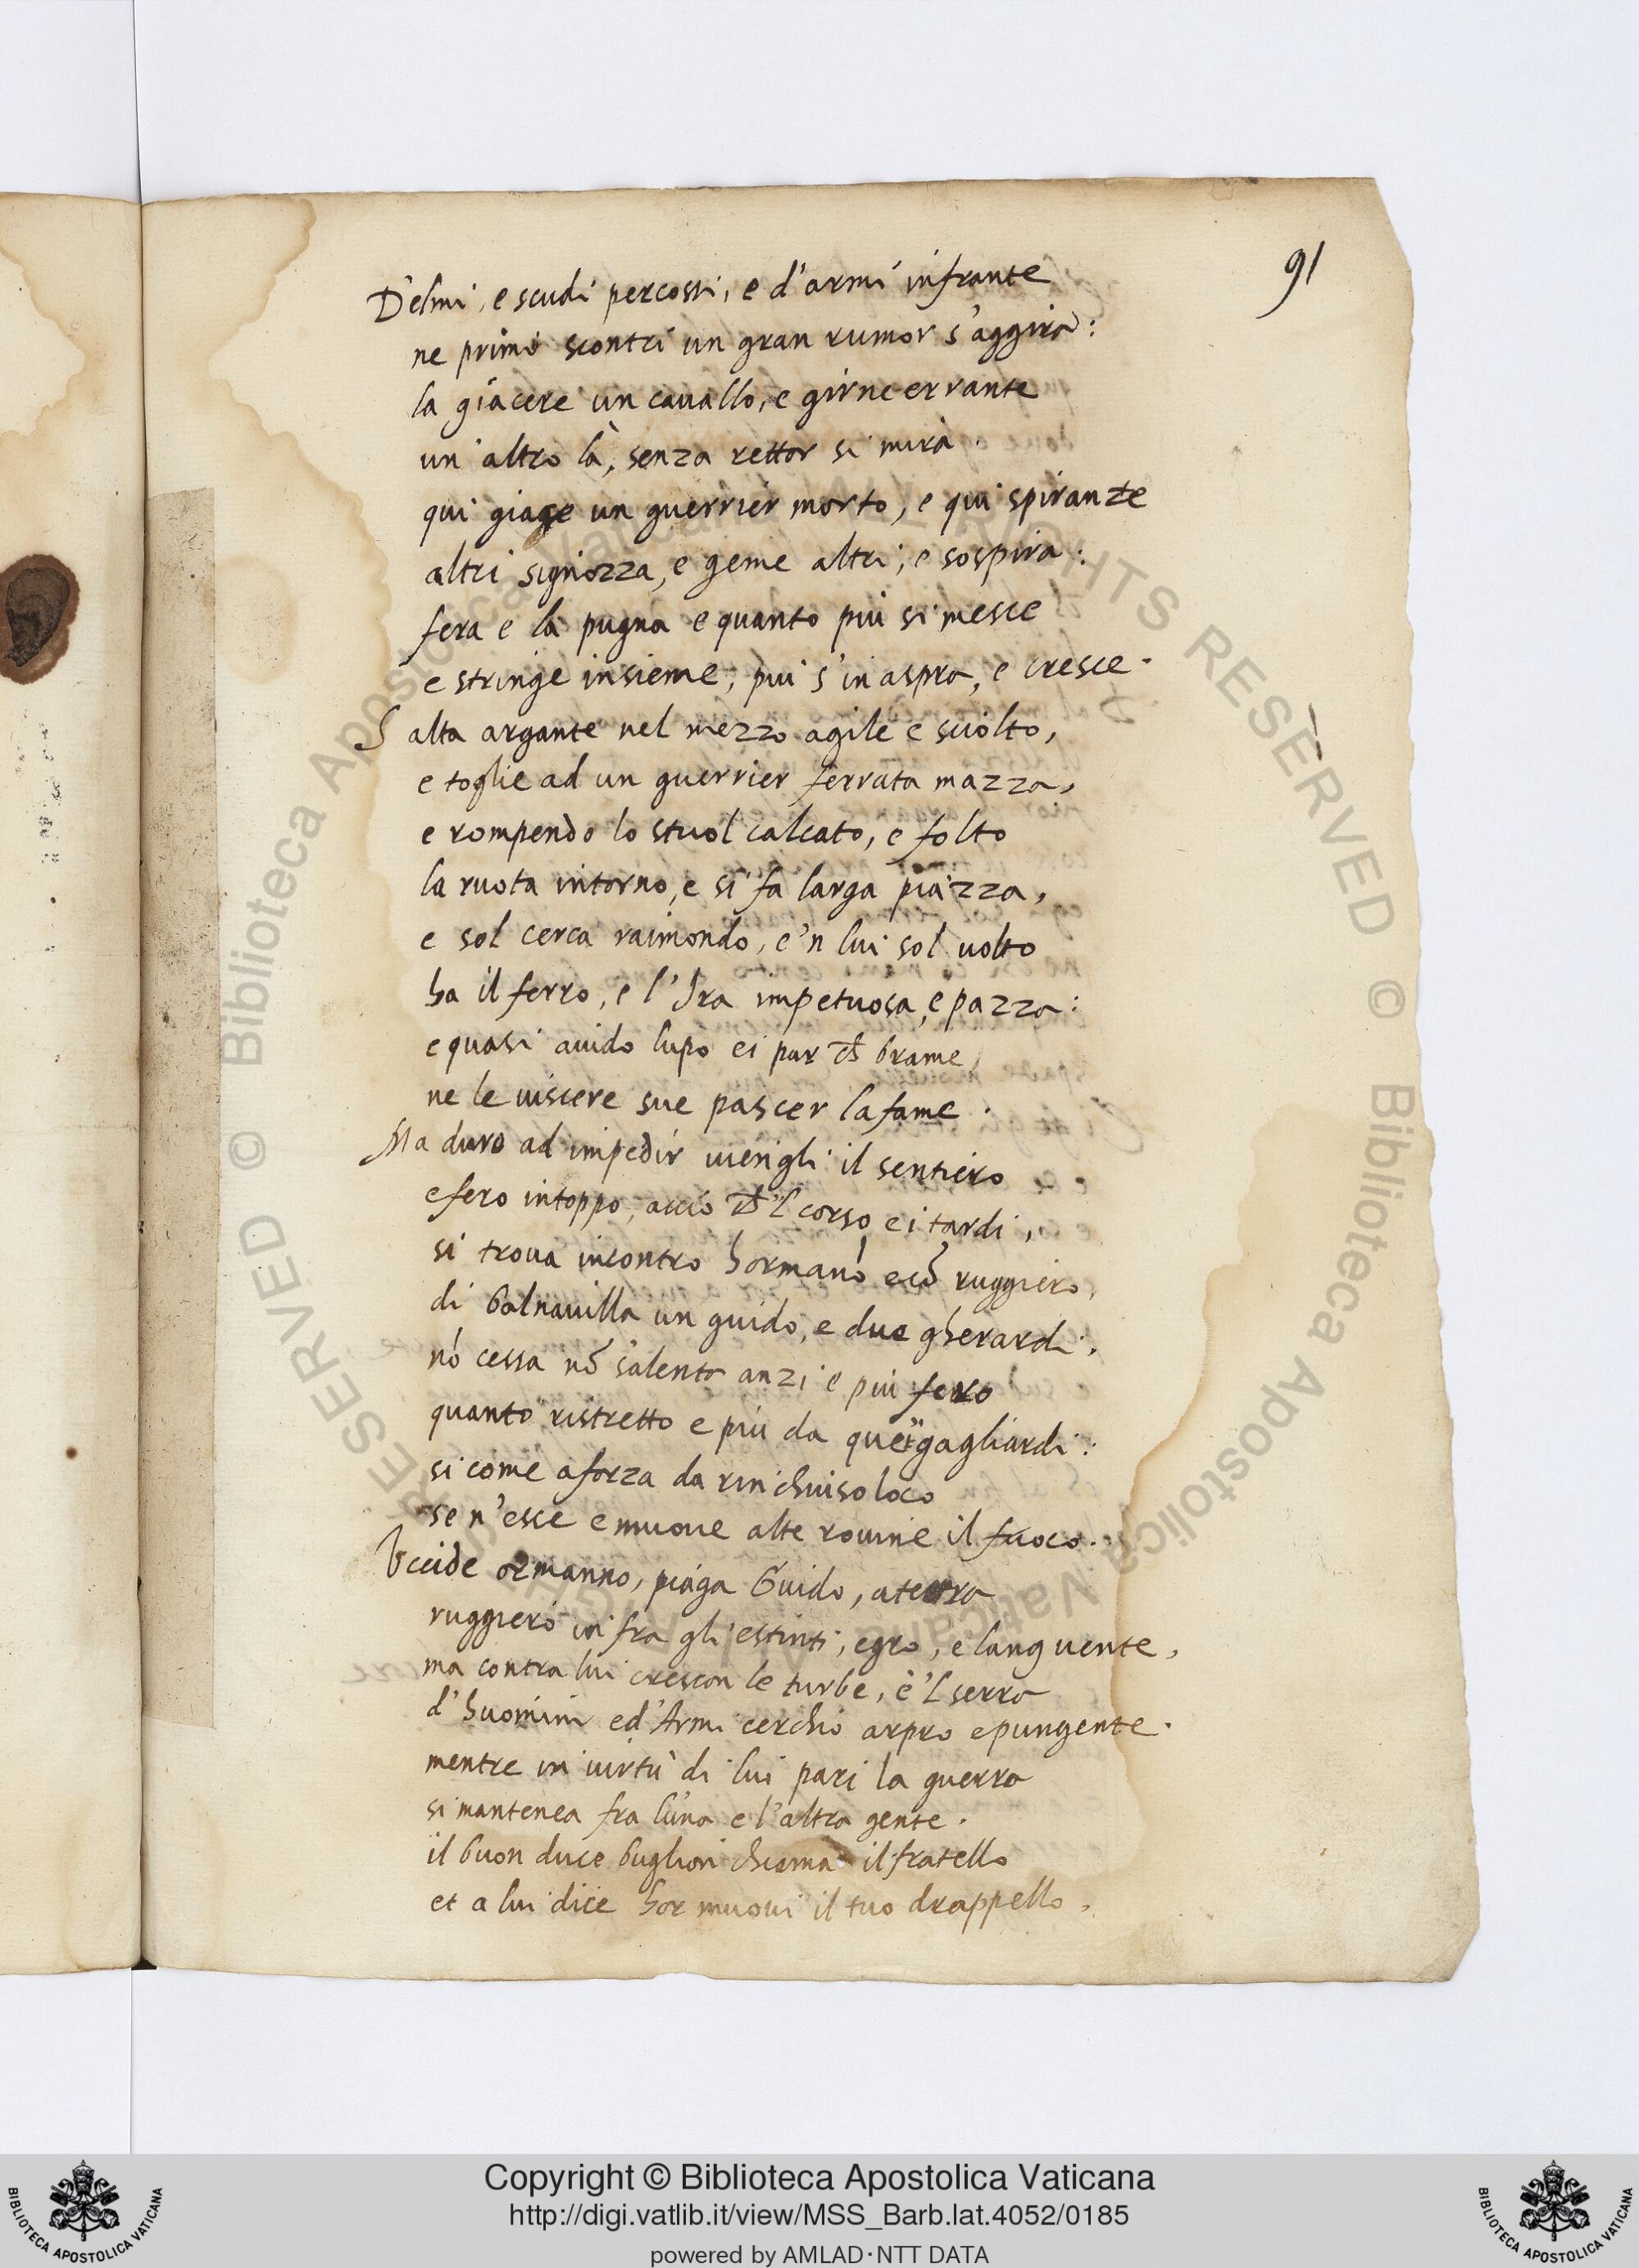 91
D'elmi, e scudi percossi, e d'armi infrante
ne primi scontri un gran rumor s'aggira:
la giacere un cauallo, e girne errante
un altro là, senza rettor si mira
qui giace un guerrier morto, e qui spirante
altri signozza, e geme altri, e sospira:
fera e la pugna e quanto piu si mesce
e stringe insieme, piu s'inaspra, e cresce.
Salta argante nel mezzo agile e sciolto,
e toglie ad un guerrier ferrata mazza,
e rompendo lo stuol calcato, e folto
la ruota intorno, e si fa larga piazza,
e sol cerca raimondo, e'n lui sol uolto
ha il ferro, e l'Ira impetuosa, e pazza:
e quasi auido lupo ei par ch brame
ne le uiscere sue pascer la fame.
Ma duro ad impedir uiengli il sentiero
e fero intoppo, acciò ch'l corso ei tardi,
si troua incontro hormanō e cō ruggiero,
di balnauilla un guido, e due gherardi.
nō cessa nō s'alenta anzi e piu fero
quanto ristretto e piu da quei gagliardi:
si come a forza da rinchiuso loco
se n'esce e muoue alte rouine il fuoco.
Vccide ormanno, piaga Guido, aterra
ruggiero in fra gli estinti, egro, e languente,
ma contra lui crescon le turbe, e'l serra
d'huomini ed'Armi cerchio aspro e pungente.
mentre in uirtù di lui pari la guerra
si mantenea fra l'una e l'altra gente.
il buon duce buglion chiama il fratello
et a lui dice hor muoui il tuo drappello,
Copyright © Biblioteca Apostolica Vaticana
http://digi.vatlib.it/view/MSS_Barb.lat.4052/0185
powered by AMLAD·NTT DATA
BIBLIOTECA APOSTOLICA VATICANA
BIBLIOTECA APOSTOLICA VATICANA